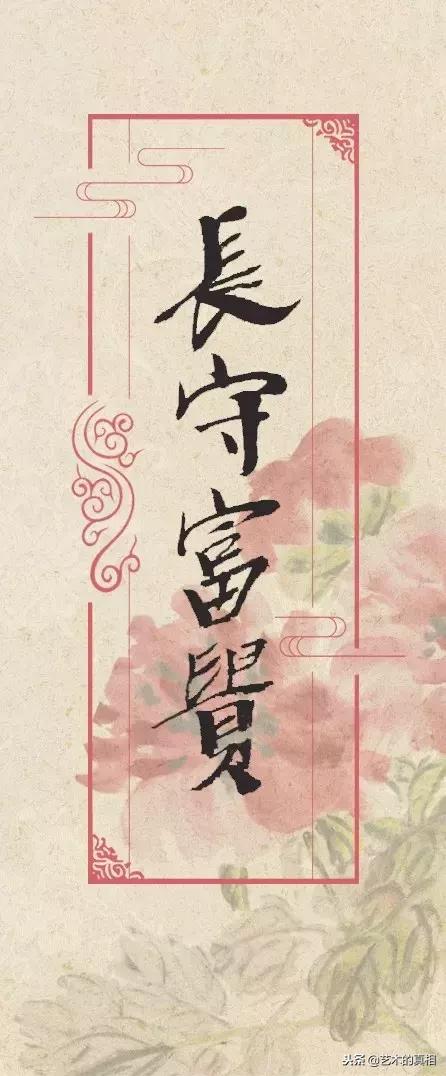 長守富貴
头条 @艺术的真相